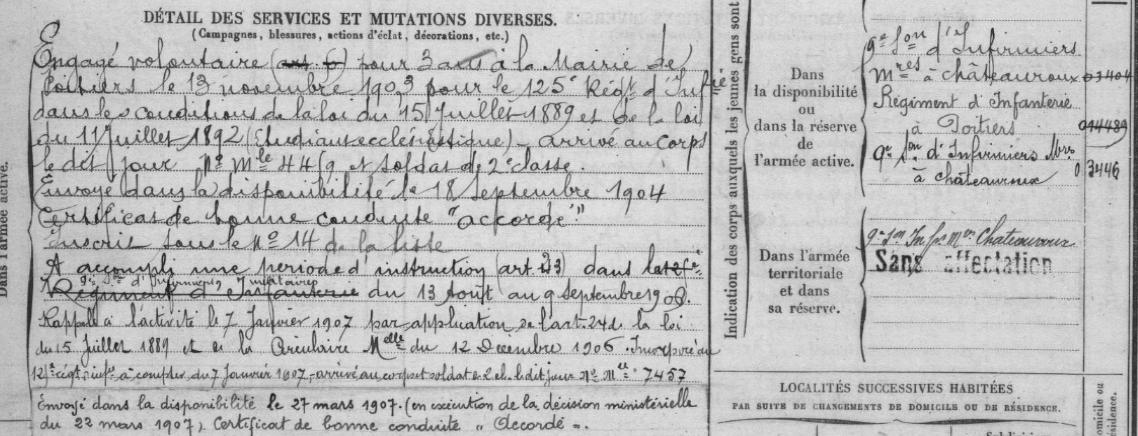 DÉTAIL DES SERVICES ET MUTATIONS DIVERSES.
(Campagnes, blessures, actions d'éclat, décorations, etc.)
Engagé volontaire pour 3 ans à la Mairie de
Poitiers le 13 novembre 1903 pour le 125e Régt d'Infie
dans les conditions de la loi du 15 Juillet 1889 et de la loi
du 11 Juillet 1892 (Etudiant ecclésiastique) - arrivé au Corps
le dit jour No Mle 4419 et soldat de 2e classe.
Envoyé dans la disponibilité le 18 Septembre 1904
Certificat de bonne conduite "accordé"
inscrit sous le No 14 de la liste
A accompli une période d'instruction (art. ) dans la 9e
Son d'infirmiers militaires
Régiment d'Infanterie du 13 Août au 9 Septembre 1906.
Rappelé à l'activité le 7 Janvier 1907 par application de l'art. 24 de la loi
du 15 Juillet 1889 et de la Circulaire Melle du 12 Decembre 1906. Incorporé au
125e régt d'infie à compter du 7 Janvier 1907, arrivé au corps et soldat de 2e cl. le dit jour No Mle 7457
Envoyé dans la disponibilité le 27 mars 1907. (en exécution de la décision ministérielle
du 22 mars 1907), Certificat de bonne conduite " Accordé ".
Dans l'armée active.
Indication des corps auxquels les jeunes gens sont
Dans
la disponibilité
ou
dans la réserve
de
l'armée active.
9e Son d'Infirmiers
Mres à Châteauroux 03404
Régiment d'Infanterie
à Poitiers 014489
9e Son d'Infirmiers Mres
à Châteauroux 0 3446
Dans l'armée
territoriale
et dans
sa réserve.
9e Son Infrs Mres Chateauroux
Sans affectation
LOCALITÉS SUCCESSIVES HABITÉES
PAR SUITE DE CHANGEMENTS DE DOMICILE OU DE RÉSIDENCE.
domicile ou
résidence.